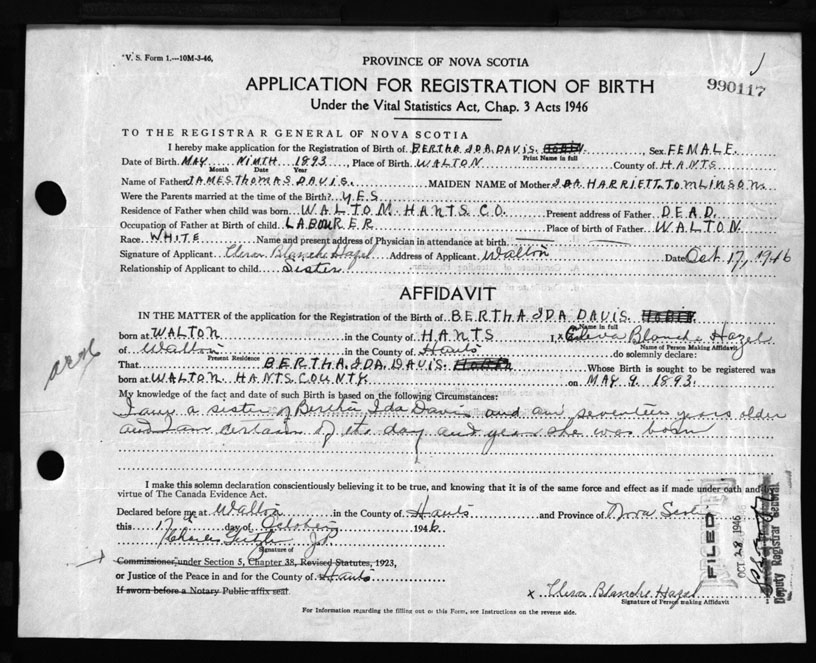 "V. S. Form 1.—10M-3-46,
PROVINCE OF NOVA SCOTIA
990117
APPLICATION FOR REGISTRATION OF BIRTH
Under the Vital Statistics Act, Chap. 3 Acts 1946
TO THE REGISTRAR GENERAL OF NOVA SCOTIA
I hereby make application for the Registration of Birth of BERTHA IDA DAVIS. Sex FEMALE.
Print Name in full
Date of Birth MAY NINTH 1893, Place of Birth WALTON County of HANTS
Month Date Year
Name of Father JAMES THOMAS DAVIS. MAIDEN NAME of Mother IDA HARRIETT TOMLINSON.
Were the Parents married at the time of the Birth? YES
Residence of Father when child was born WALTON HANTS CO. Present address of Father DEAD.
Occupation of Father at Birth of child LABOURER Place of birth of Father WALTON
Race WHITE Name and present address of Physician in attendance at birth
Signature of Applicant Blanche Hazel Address of Applicant Walton Date Oct 17, 1946
Relationship of Applicant to child Sister
AFFIDAVIT
IN THE MATTER of the application for the Registration of the Birth of BERTHA IDA DAVIS
Name in full
born at WALTON in the County of HANTS I, Blanche Hazel
Name of Person Making Affidavit
of Walton in the County of Hants do solemnly declare:
Present Residence
That BERTHA IDA DAVIS. Whose Birth is sought to be registered was
born at WALTON HANTS COUNTY on MAY 9 1893.
My knowledge of the fact and date of such Birth is based on the following Circumstances:
I am a sister of Bertha Ida Davis and am seventeen years older
and I am certain of the day and year she was born
I make this solemn declaration conscientiously believing it to be true, and knowing that it is of the same force and effect as if made under oath and by
virtue of The Canada Evidence Act.
Declared before me at Walton in the County of Hants and Province of Nova Scotia
this 17 day of October 1946
Charles J.P.
Signature of
Commissioner, under Section 5, Chapter 38, Revised Statutes, 1923,
or Justice of the Peace in and for the County of Hants
If sworn before a Notary Public affix seal
x Blanche Hazel
Signature of Person making Affidavit
For Information regarding the filling out of this Form, see Instructions on the reverse side.
FILED
OCT 28 1946
Deputy Registrar General